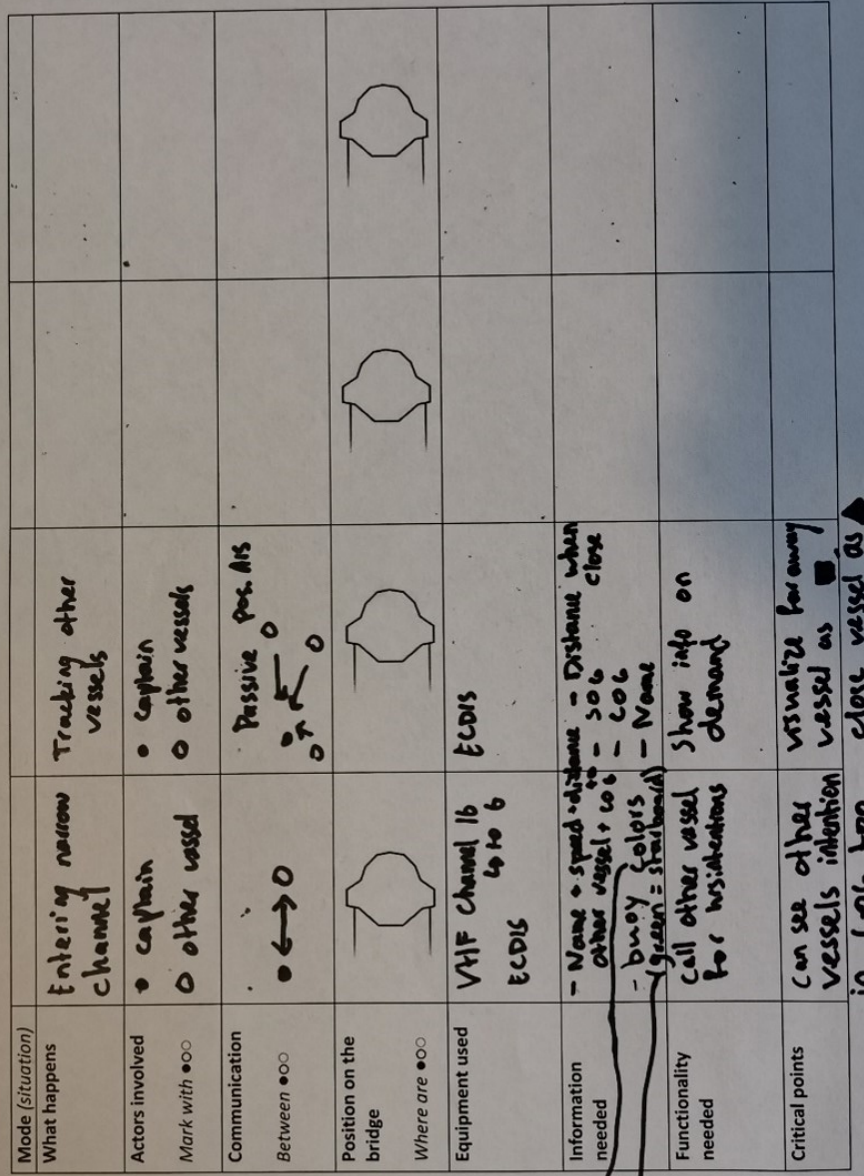 Mode (situation)
What happens
Entering narrow
channel
Tracking other
vessels
Actors involved
Mark with ●●○
• captain
○ other vessel
• captain
○ other vessels
Communication
Between ●○○
Passive pos. AIS
Position on the
bridge
Where are ●○○
Equipment used
VHF Channel 16
to 6
ECDIS
ECDIS
Information
needed
- Name + speed + distance to
other vessel + COG
- buoy colors
(green = starboard)
- Distance when
close
- SOG
- COG
- Name
Functionality
needed
Call other vessel
for intentions
Show info on
demand
Critical points
can see other
vessels intention
visualize far away
vessel as ■
close vessel as ▲